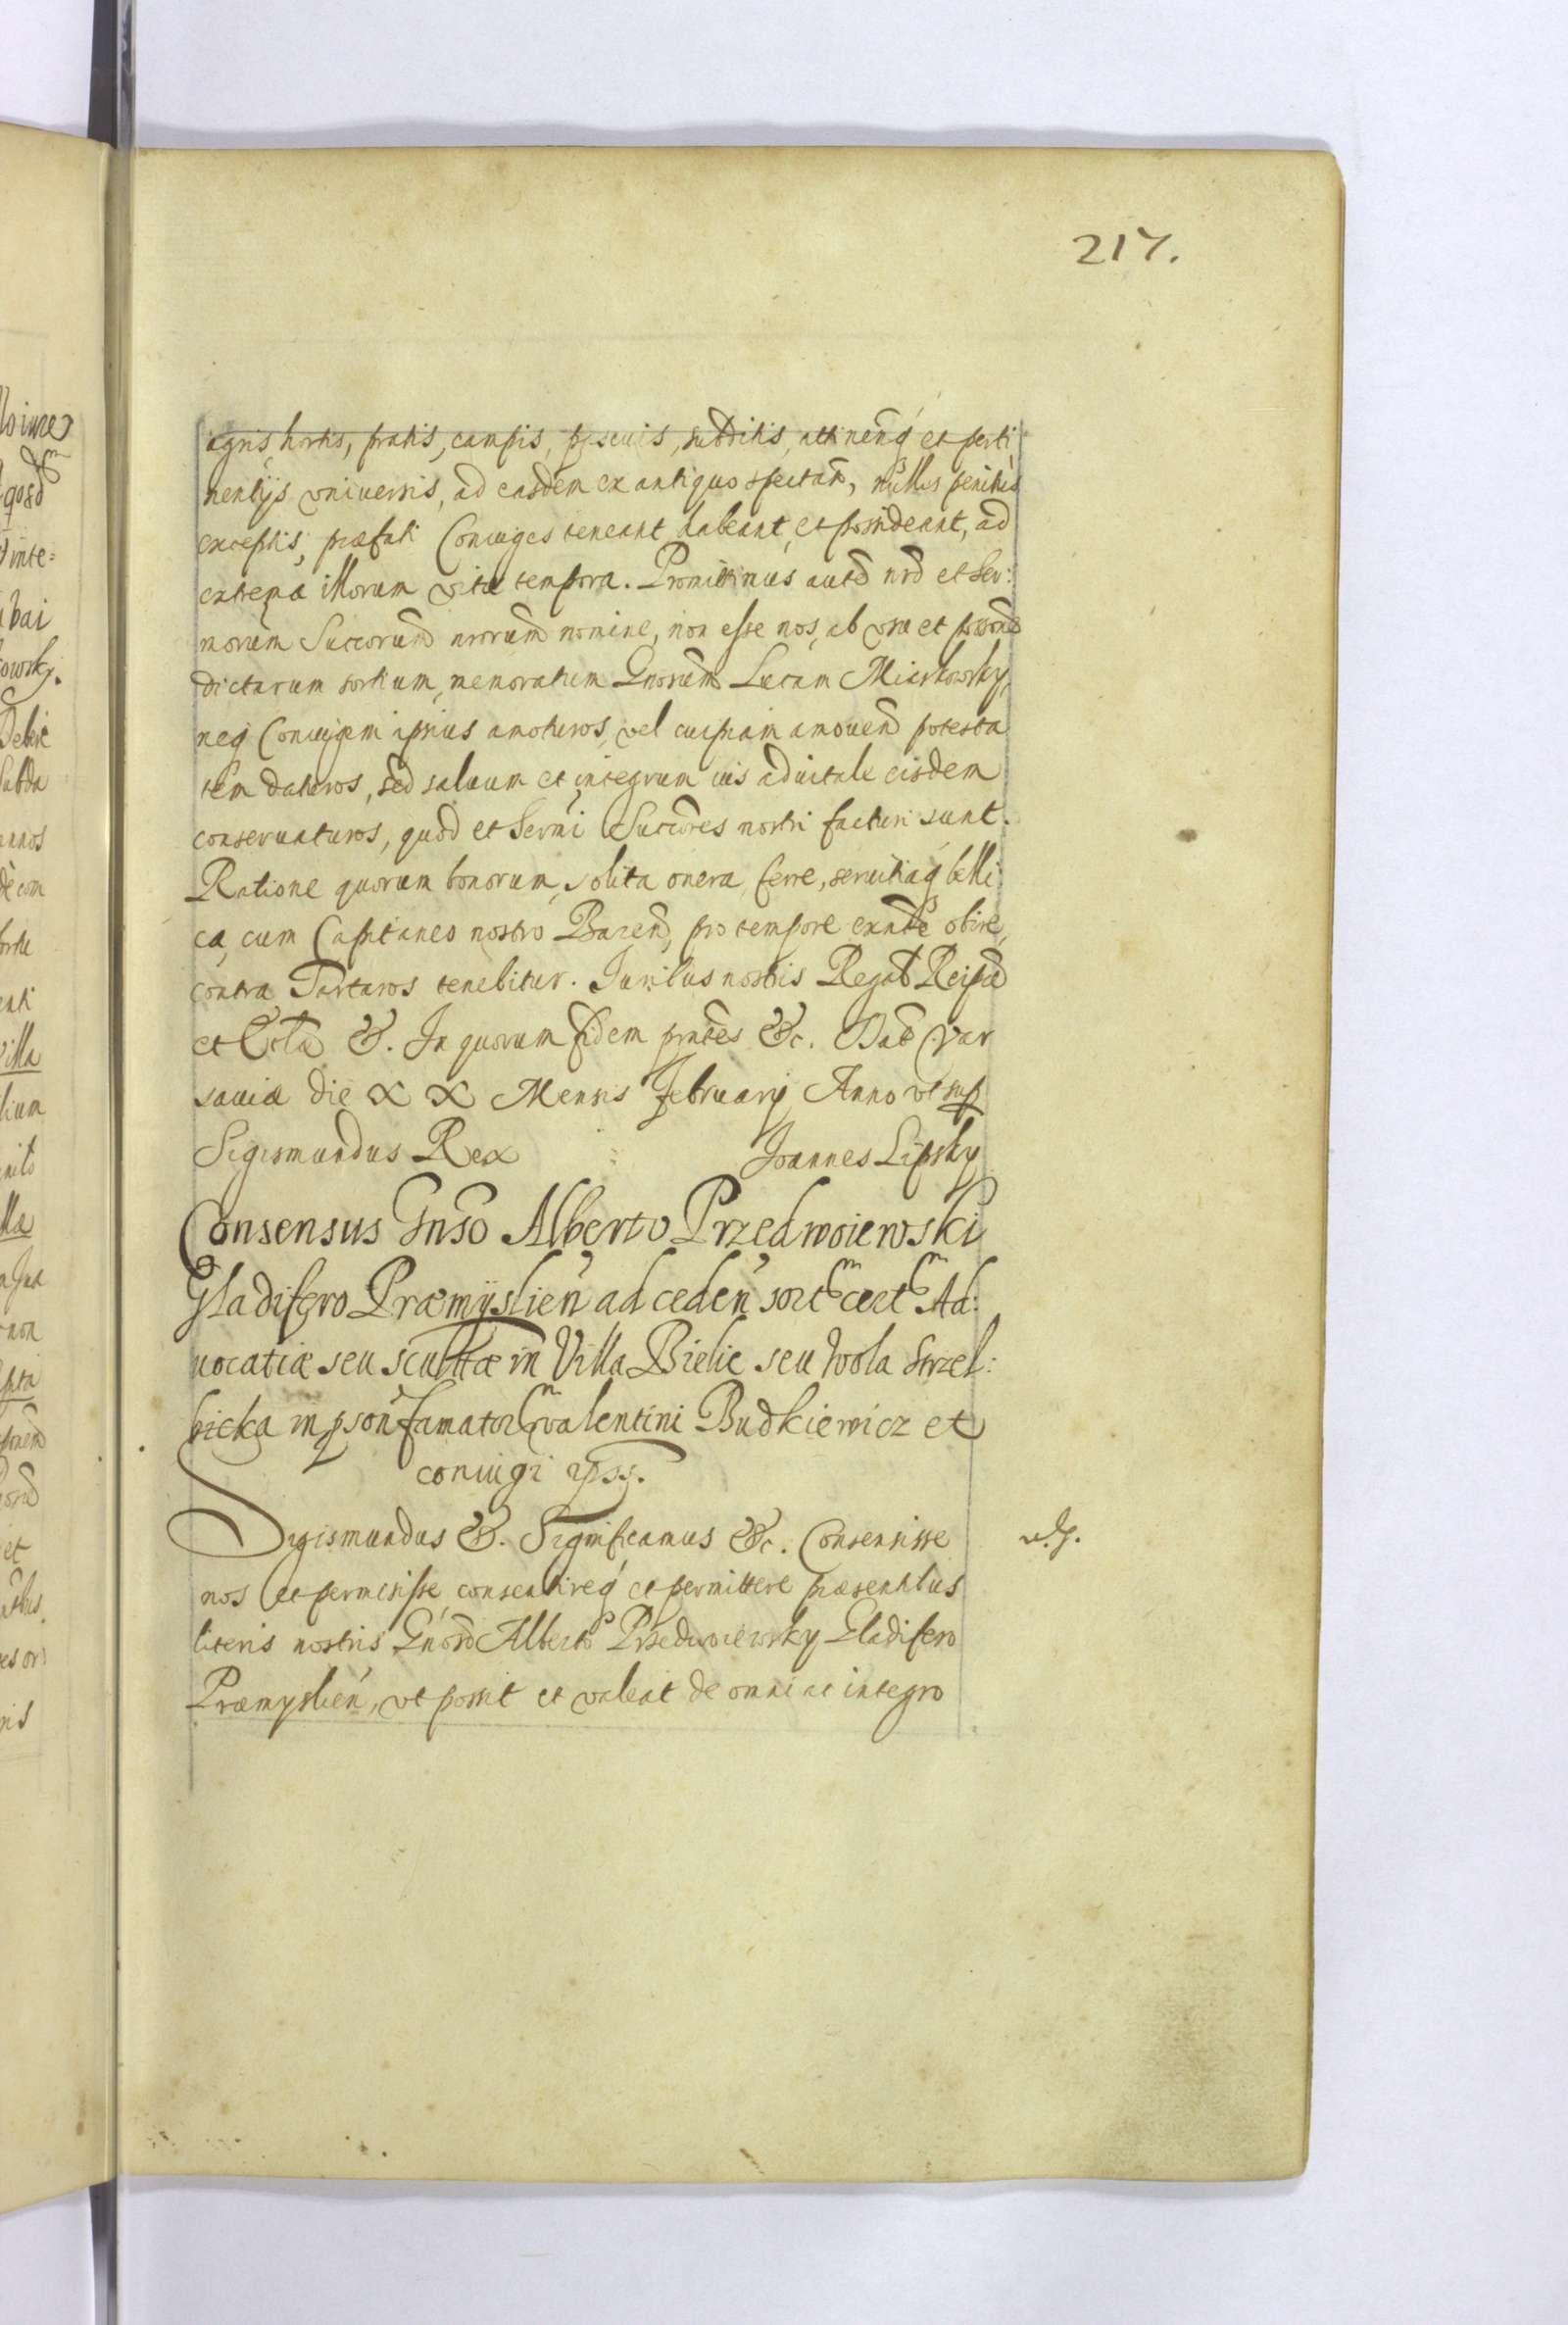 217.
agris, hortis, pratis, campis, pascuis, subditis, attinenq́ et perti:
nentijs vniuersis, ad easdem ex antiquo spectan, nullis penitus
exceptis, præfati Coniuges teneant habeant, et possideant, ad
extrema illorum vitæ tempora. Promittimus autē nrō et Ser:
morum Succorum nrorum nomine, non esse nos, ab vsu et possone
dictarum sortium, memoratum Gnosum Lucam Miaskowsky,
neq Coniugem ipsius amoturos, vel cuipiam amouend potesta
tem daturos, sed saluum et integrum ius aduitale eisdem
conseruaturos, quod et Sermi Succores nostri facturi sunt.
Ratione quorum bonorum, solita onera ferre, seruitiaq́ belli:
ca, cum Capitaneo nostro Baren, pro tempore exnte obire,
contra Tartaros tenebitur. Iuribus nostris Regal Reipcæ
et Ecclæ &. In quorum fidem pntes &c. Dat Var
sauiæ die XX Mensis Februarij Anno vt sup
Sigismundus Rex Joannes Lipsky
Consensus Gnso Alberto Przedwoiewski
Gladifero Præmÿslien ad ceden sortem certem Ad:
uocatiæ seu scultæ in Villa Bielic seu Wola Strzel:
bicka in pson famatorm Valentini Budkiewicz et
coniugi ipss.
Sigismundus &. Significamus &c. Consensisse
nos et permisisse, consentireq́ et permittere præsentibus
literis nostris Gnoso Alberto Przedwoiewsky Gladifero
Præmyslien, vt possit et valeat de omni ac integro